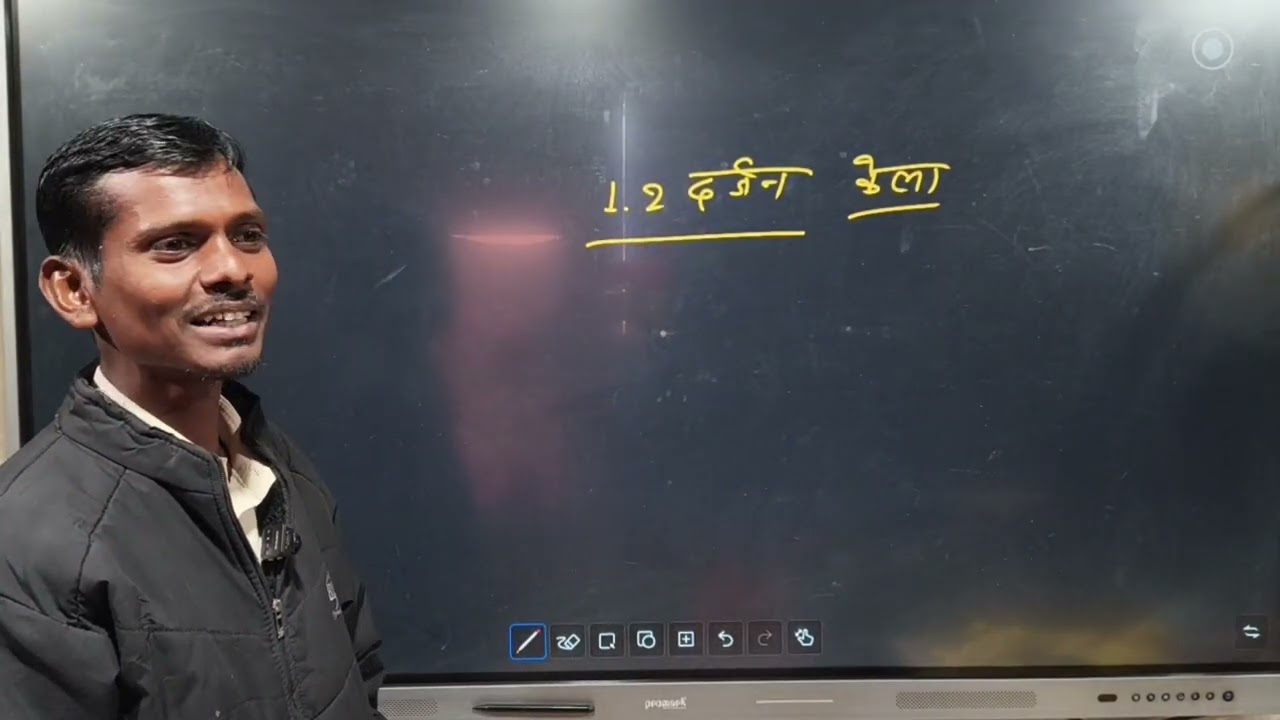 1.2 दर्जन केला
promark